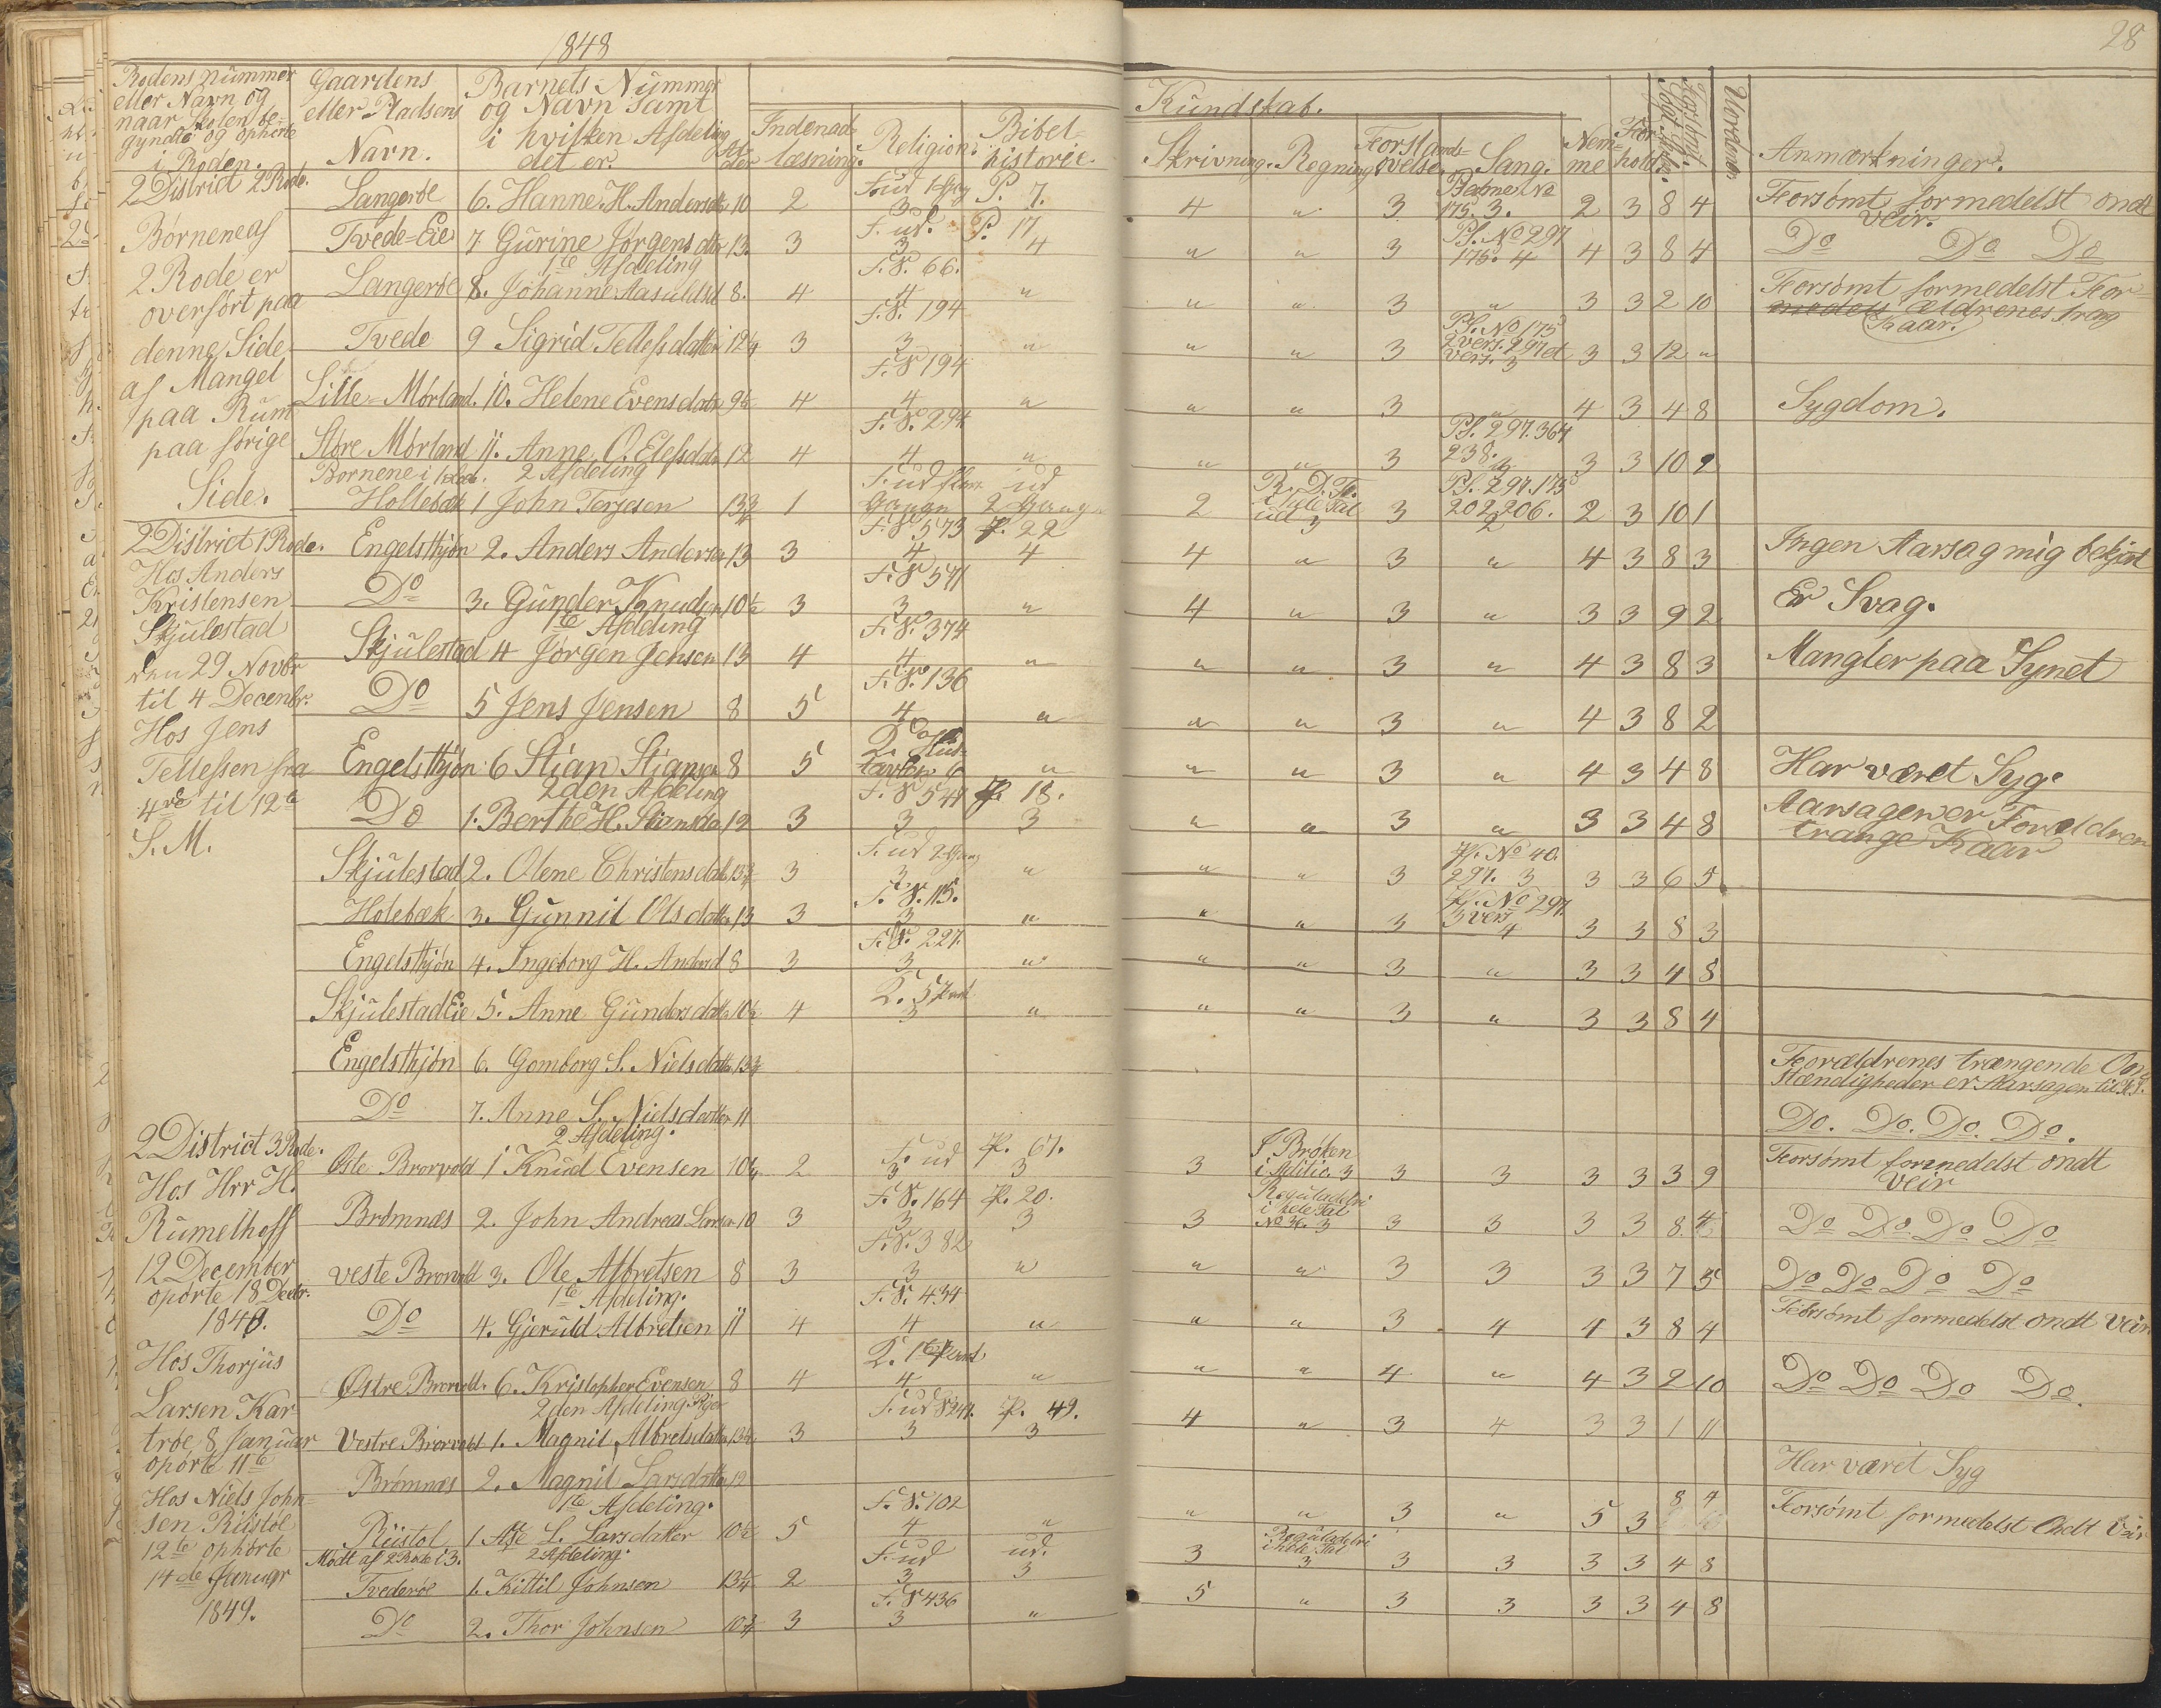 1848
28
Rodens nummer
eller Navn og
naar Skolen be-
gyndte og ophørte
i Roden.
Gaardens
eller Pladsens
Navn.
Barnets Nummer
og Navn samt
i hvilken Afdeling
det er.
Al-
der
Indenad-
læsning.
Religion.
Bibel-
historie
Kundskab.
Skrivning.
Regning
Forstands-
øvelse.
Sang.
Nem-
me
For-
hold
Forsømt.
Anmærkninger.
2 District 2 Rode.
Børnene af
2 Rode er
overført paa
denne Side
af Mangel
paa Rum
paa forige
Side.
Langerøe 6. Hanne H. Andersdtr 10 2 F. ud 1 Gang 3 P. 7. 4 " 3 Psalme No 175. 3. 2 3 8 4 Forsømt formedelst ondt
Veir.
Tvede-Eie 7 Gurine Jørgensdtr 13. 3 F. ud. 3 P. 17 4 " " 3 Ps. No 297 175. 4 4 3 8 4 Do Do Do
1te Afdeling
Langerøe 8. Johanne Aasuldsd 8. 4 F. S. 66. 4 " " " 3 " 3 3 2 10 Forsømt formedelst For-
ældrenes trang
Kaar.
Tvede 9 Sigrid Tellefsdatter 12 1/4 3 F. S. 194 3 " " " 3 Ps. No 175 2 vers. 297 et vers. 3 3 3 12 "
Lille-Mørland. 10. Helene Evensdatr 9 1/2 4 F. S 194 4 " " " 3 " 4 3 4 8 Sygdom.
Store Mørland 11. Anne O. Elefsdatr 12 4 F. S. 294 4 " " " 3 Ps. 297. 364 238. 3 3 3 10 2
Børnene i 2 Afdeling
Hollebæk 1 John Terjesen 13 3/4 1 F. ud flere Gange ud 2 Gange 2 R. D. Fr. i hele Tal ud 3 3 Ps. 297. 175 202. 206. 2 2 3 10 1
2 District 1 Rode.
Hos Anders
Kristensen
Skjulestad
den 29 Novbr
til 4 Decenbr.
Hos Jens
Tellefsen fra
4de til 12te
S. M.
Engelsthjøn 2. Anders Andersen 13 3 F. S 573 4 P. 22 4 4 " 3 " 4 3 8 3 Ingen Aarsag mig bekjent
Do 3. Gunder Knudsen 10 1/2 3 F. S 571 3 " 4 " 3 " 3 3 9 2 Er Svag.
1te Afdeling
Skjulestad 4 Jørgen Jensen 13 4 F. S. 374 4 " " " 3 " 4 3 8 3 Mangler paa Synet
Do 5 Jens Jensen 8 5 F. S. 136 4 " " " 3 " 4 3 8 2
Engelsthjøn 6 Stian Stiansen 8 5 " " " 3 " 4 3 4 8 Har været Syg.
2den Afdeling
Do 1. Berthe H. Stiansdtr 12 3 F. S 544 3 P. 18. 3 " " 3 " 3 3 4 8 Aarsagen er Forældrenes
trange Kaar
Skjulestad 2. Olene Christensdatr 13 3/4 3 F. ud 2 Gang 3 " " " 3 Ps. No 40. 297. 3 3 3 6 5
Holebæk 3. Gunnil Olsdatter 13 3 F. S. 115. 3 " " " 3 Ps. No 297. 3 vers 4 3 3 8 3
Engelsthjøn 4. Ingeborg H. Andersd 8 3 F. S. 227. 3 " " " 3 " 3 3 4 8
Skjulestad Eie 5. Anne Gundersdatter 10 1/2 4 3 " " " 3 " 3 3 8 4
Engelsthjøn 6. Gomborg S. Nielsdatter 13 3/4 Forældrenes trængende Om-
stændigheder er Aarsagen til
Do 7. Anne S. Nielsdatter 11 Do. Do. Do. Do.
2 District 3 Rode.
Hos Hrr H.
Rumelhoff
12 December
oporte 18 Decbr.
1848.
Hos Thorjus
Larsen Kar-
trøe 8 Januar
oporte 11te
Hos Niels John-
sen Riistøl
12te ophørte
14de Januar
1849.
2 Afdeling.
Øste Brorvold 1 Knud Evensen 10 1/4 2 F. ud 3 P. 67. 3 3 I Brøken i Aditio. 3 3 3 3 3 3 9 Forsømt formedelst ondt
Veir
Brømnæs 2. John Andreas Larsen 10 3 F. S. 164 3 P. 20. 3 3 Reguladetri i hele Tal No 36. 3 3 3 3 3 8. 4 Do Do Do Do
veste Brorvold 3. Ole Albretsen 8 3 F. S. 382 3 " " " 3 3 3 3 7 5 Do Do Do Do
1te Afdeling.
Do 4. Gjeruld Albretsen 11 4 F. S. 434 4 " " " 3 4 4 3 8 4 Forsømt formedelst ondt Veir
Østre Brorvold. 6. Kristopher Evensen 8 4 4 " " " 4 " 4 3 2 10 Do Do Do Do.
2den Afdeling Piger
Vestre Brorvold 1. Magnil Albretsdatter 13 1/2 3 F. ud S 244 3 P. 49. 3 4 " 3 4 3 3 1 11
Brømnæs 2. Magnil Larsdatter 12 Har været Syg
1te Afdeling.
Riistøl 1 Ase L. Larsdatter 10 1/2 5 F. S. 102 4 " " " 3 " 5 3 8 4 Forsømt formedelst Ondt Veir
Mødt af 2 Rode i 3. 2 Afdeling.
Tvederøe 1. Kittil Johnsen 13 1/4 2 F. ud 3 ud. 3 3 Reguladetri i hele Tal 3 3 3 3 3 4 8
Do 2. Thor Johnsen 10 3/4 3 F. S 436 3 " 5 " 3 3 3 3 4 8